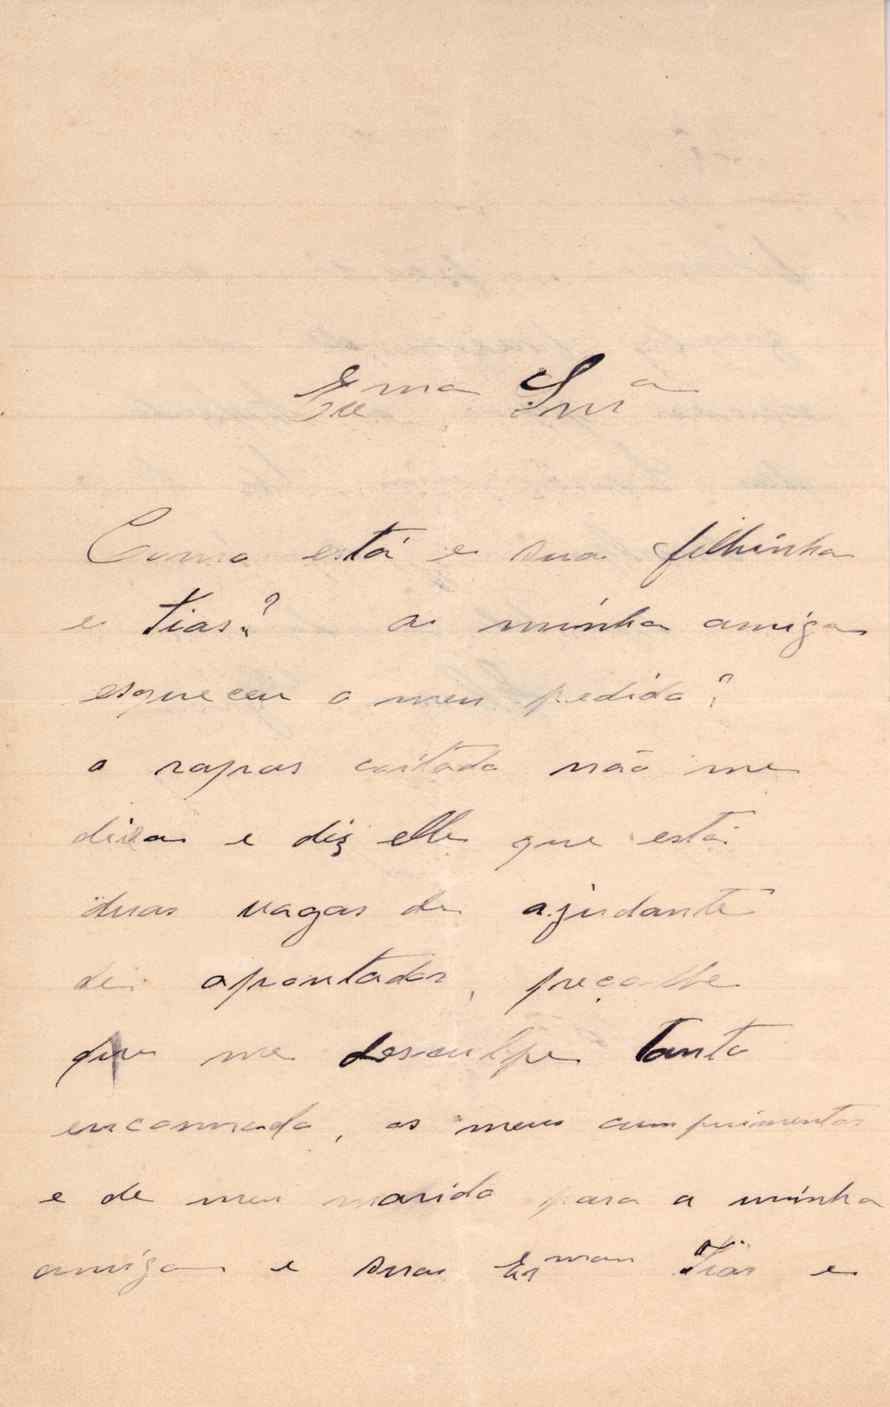 Exma Snrª
Como está e sua filhinha
e tias? a minha amiga
esqueceu o meu pedido?
o rapas coitado não me
e diz elle que está
duas vagas de ajudante
de apontador, peço-lhe
que me desculpe tanto
encommodo, os meus cumprimentos
e de meu marido para a minha
amiga e suas Exmas Tias e